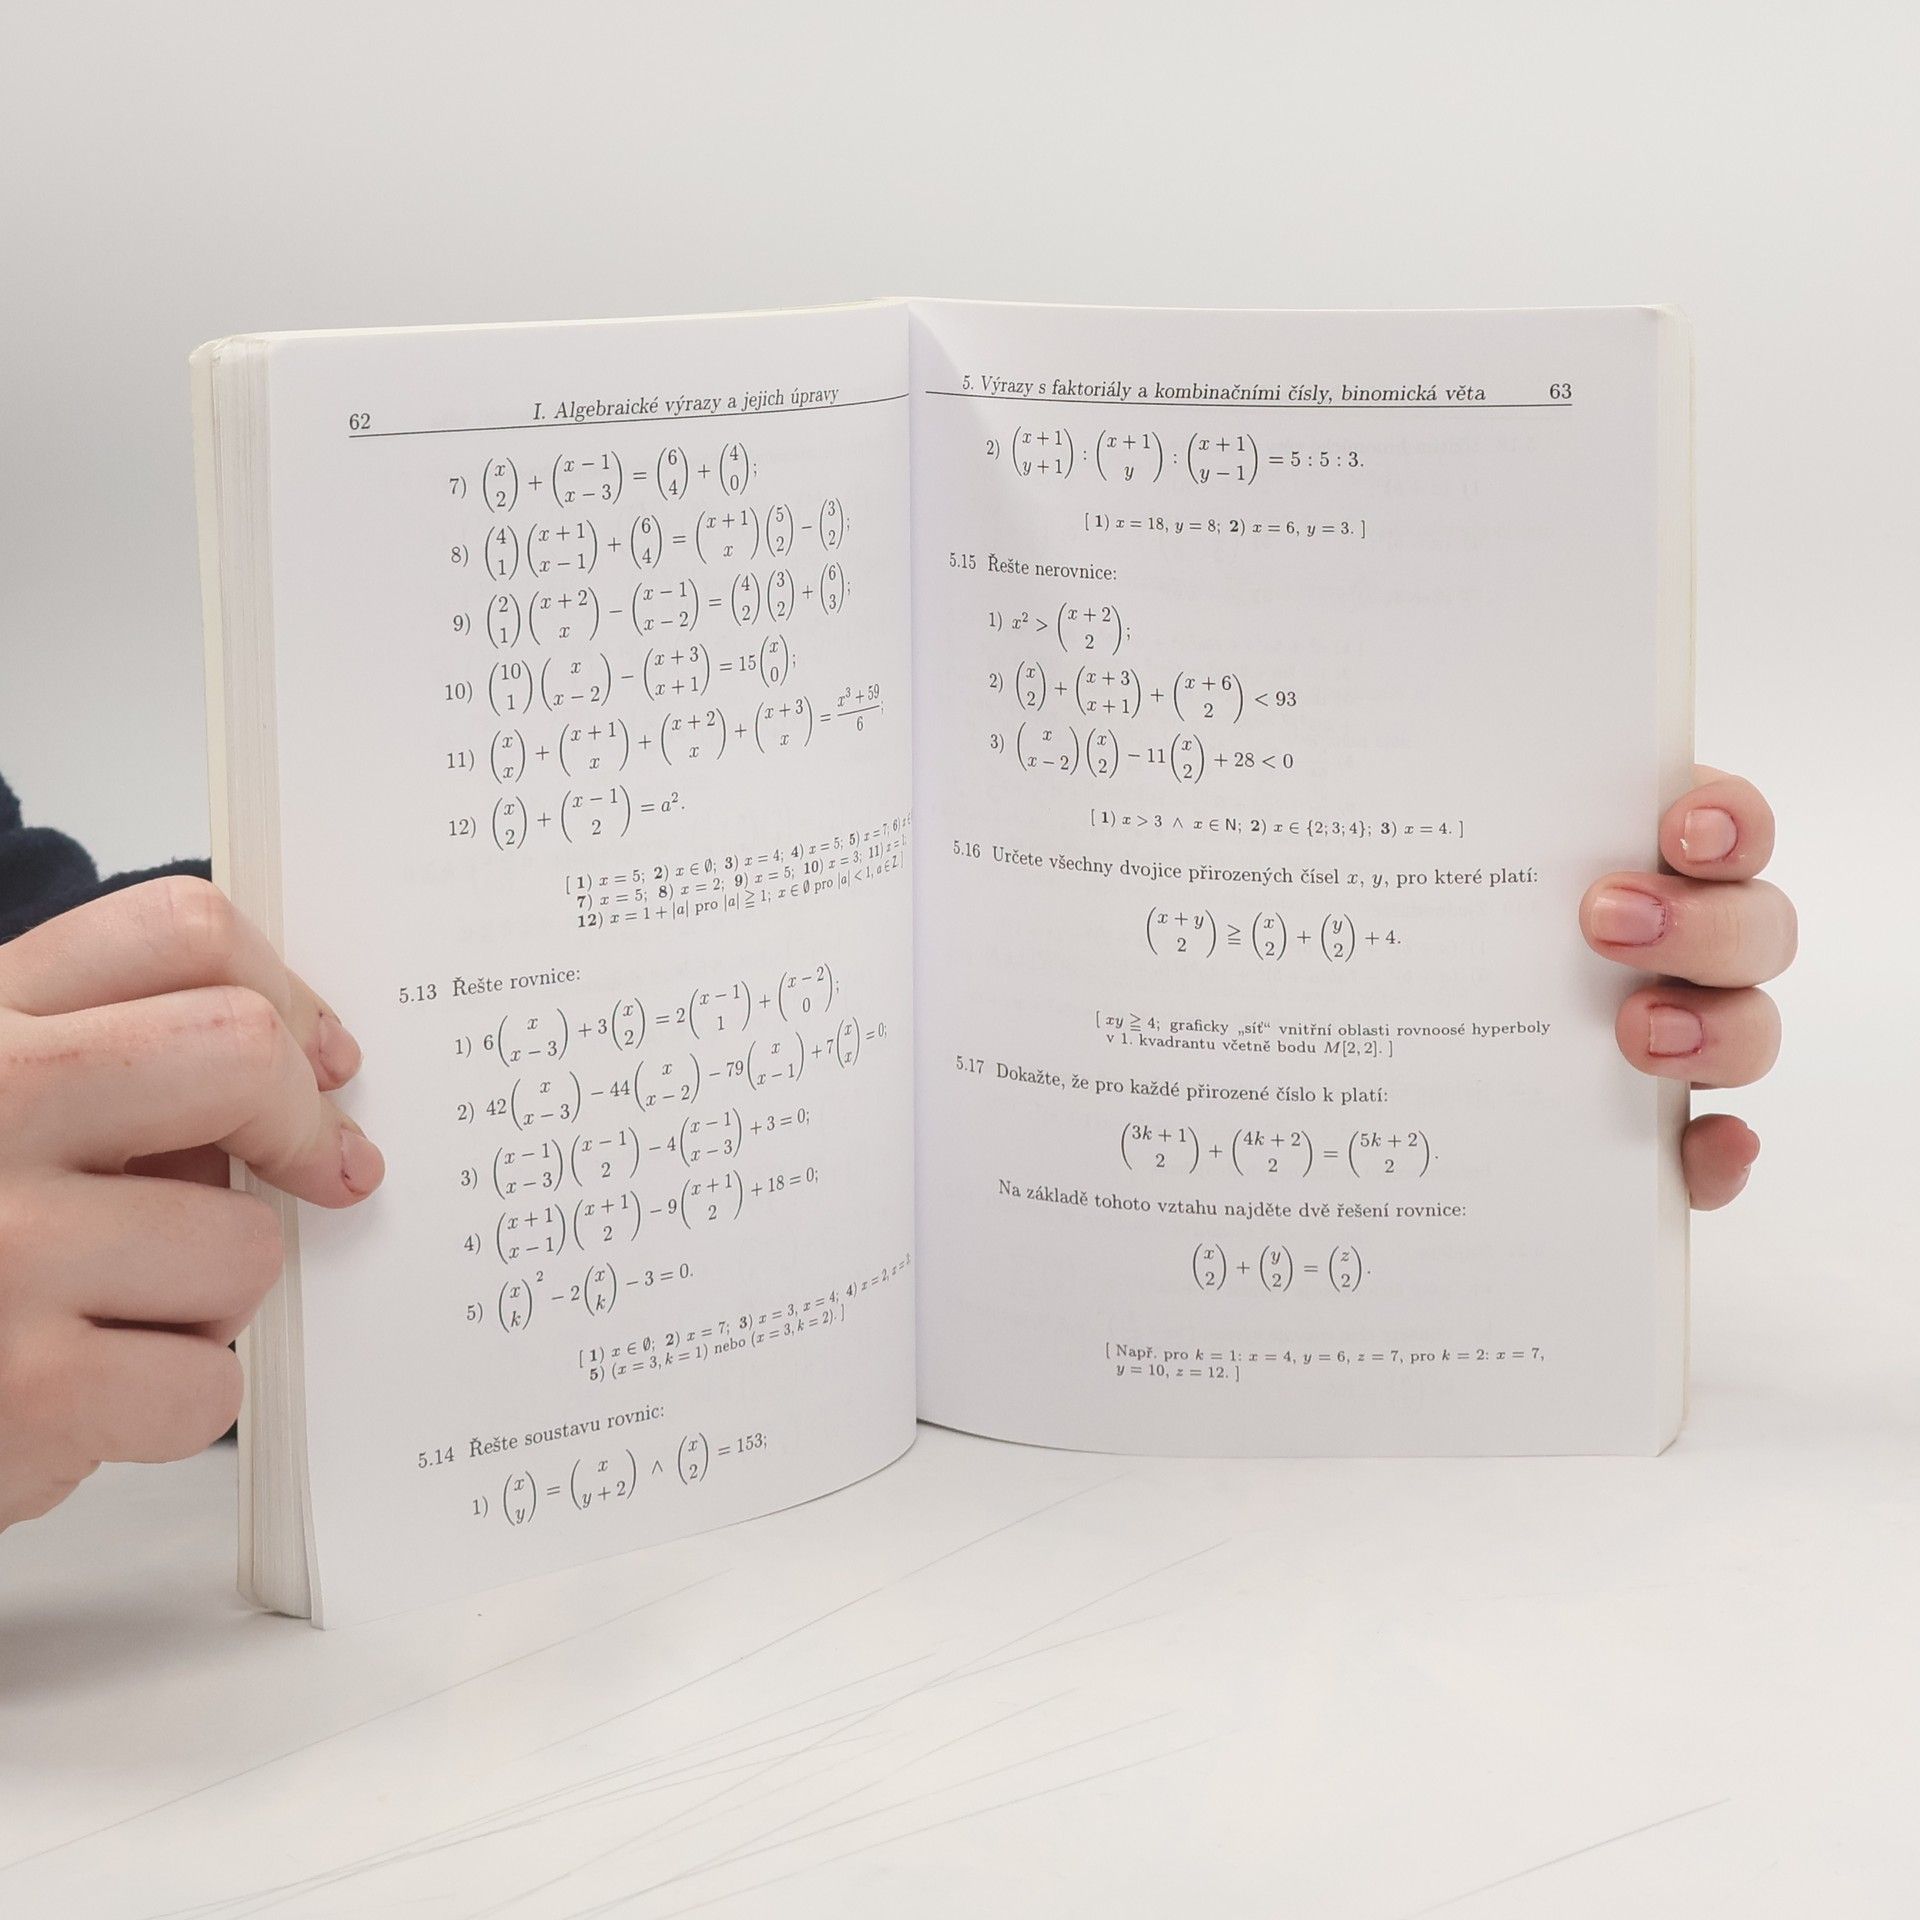 62 I. Algebraické výrazy a jejich úpravy
7) (x 2) + (x − 1 x − 3) = (6 4) + (4 0);
8) (4 1)(x + 1 x − 1) + (6 4) = (x + 1 x)(5 2) − (3 2);
9) (2 1)(x + 2 x) − (x − 1 x − 2) = (4 2)(3 2) + (6 3);
10) (10 1)(x x − 2) − (x + 3 x + 1) = 15(x 0);
11) (x x) + (x + 1 x) + (x + 2 x) + (x + 3 x) = x³ + 59 / 6;
12) (x 2) + (x − 1 2) = a².
[ 1) x = 5; 2) x ∈ ∅; 3) x = 4; 4) x = 5; 5) x = 7; 6)
7) x = 5; 8) x = 2; 9) x = 5; 10) x = 3; 11) x = 1;
12) x = 1 + |a| pro |a| ≧ 1; x ∈ ∅ pro |a| < 1, a ∈ Z ]
5.13 Řešte rovnice:
1) 6(x x − 3) + 3(x 2) = 2(x − 1 1) + (x − 2 0);
2) 42(x x − 3) − 44(x x − 2) − 79(x x − 1) + 7(x x) = 0;
3) (x − 1 x − 3)(x − 1 2) − 4(x − 1 x − 3) + 3 = 0;
4) (x + 1 x − 1)(x + 1 2) − 9(x + 1 2) + 18 = 0;
5) (x k)² − 2(x k) − 3 = 0.
[ 1) x ∈ ∅; 2) x = 7; 3) x = 3, x = 4; 4) x = 2, x = 3;
5) (x = 3, k = 1) nebo (x = 3, k = 2). ]
5.14 Řešte soustavu rovnic:
1) (x y) = (x y + 2) ∧ (x 2) = 153;
5. Výrazy s faktoriály a kombinačními čísly, binomická věta 63
2) (x + 1 y + 1) : (x + 1 y) : (x + 1 y − 1) = 5 : 5 : 3.
[ 1) x = 18, y = 8; 2) x = 6, y = 3. ]
5.15 Řešte nerovnice:
1) x² > (x + 2 2);
2) (x 2) + (x + 3 x + 1) + (x + 6 2) < 93
3) (x x − 2)(x 2) − 11(x 2) + 28 < 0
[ 1) x > 3 ∧ x ∈ N; 2) x ∈ {2; 3; 4}; 3) x = 4. ]
5.16 Určete všechny dvojice přirozených čísel x, y, pro které platí:
(x + y 2) ≧ (x 2) + (y 2) + 4.
[ xy ≧ 4; graficky „síť“ vnitřní oblasti rovnoosé hyperboly
v 1. kvadrantu včetně bodu M[2, 2]. ]
5.17 Dokažte, že pro každé přirozené číslo k platí:
(3k + 1 2) + (4k + 2 2) = (5k + 2 2).
Na základě tohoto vztahu najděte dvě řešení rovnice:
(x 2) + (y 2) = (z 2).
[ Např. pro k = 1: x = 4, y = 6, z = 7, pro k = 2: x = 7,
y = 10, z = 12. ]